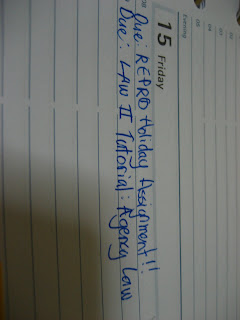 15 Friday
Due: REPRO Holiday Assignment!!.
Due: LAW II Tutorial: Agency Law
Evening